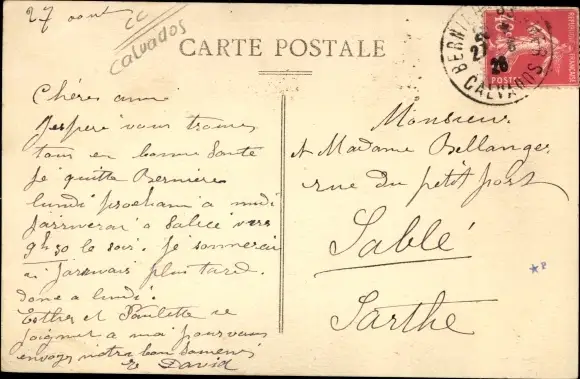 27 aout
CC
Calvados
CARTE POSTALE
BERNIÈRES
27 8
26
CALVADOS
POSTES
Chères ami
J'espère vous trouver
tous en bonne Santé
Je quitte Bernières
lundi prochain a midi
J'arriverai a Sablé vers
9h30 le soir. Je sonnerai
si j'arrivais plus tard.
donc a lundi.
Esther et Paulette se
joignent a moi pour vous
envoyer notre bon souvenir
David
Monsieur
et Madame Bellanger
rue du petit port
Sablé
Sarthe